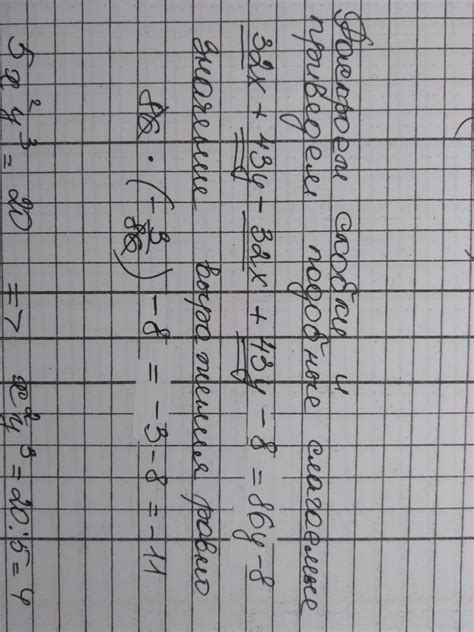 Раскроем скобки и
приведем подобные слагаемые
32x + 43y - 32x + 43y - 8 = 86y - 8
значение выражения равно
86 · (-3/86) - 8 = -3 - 8 = -11
5x²y³ = 20 => x²y³ = 20:5 = 4